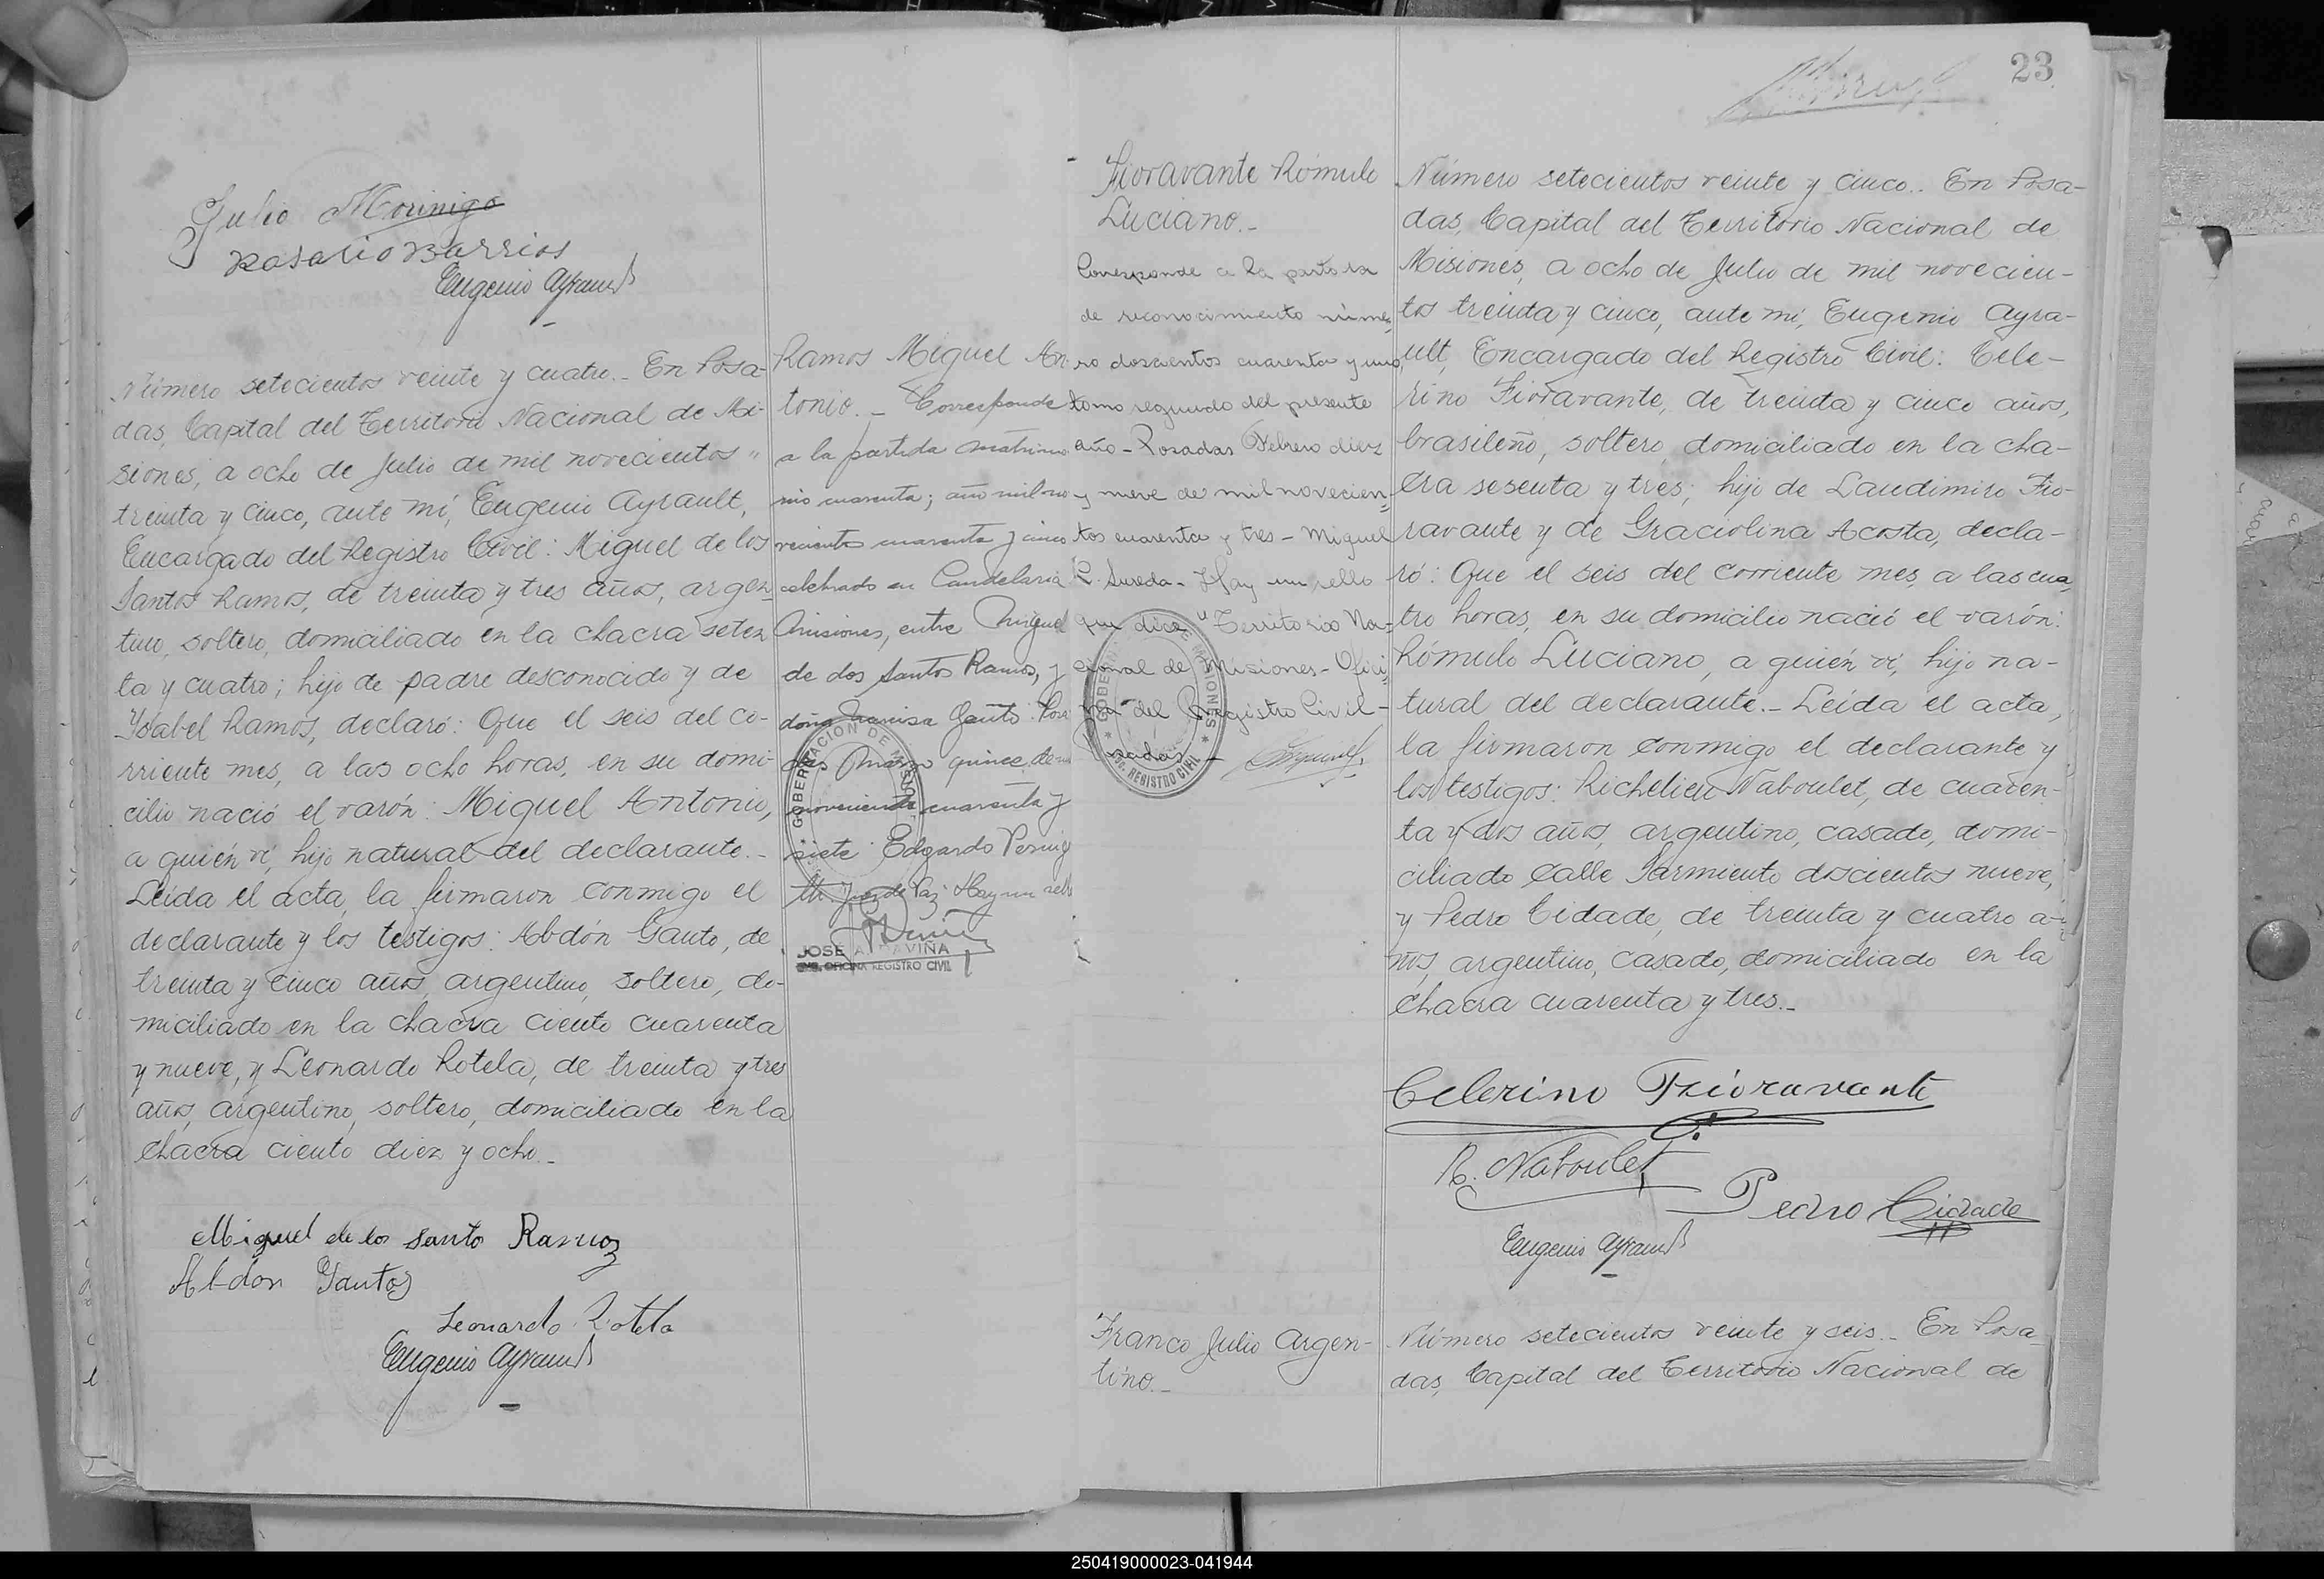 Julio Morinigo
Rosario Barrios
Eugenio Ayrault
Número setecientos veinte y cuatro.- En Posa-
das, Capital del Territorio Nacional de Mi-
siones, a ocho de Julio de mil novecientos "
treinta y cinco, ante mí, Eugenio Ayrault,
Encargado del Registro Civil: Miguel de los
Santos Ramos, de treinta y tres años, argen-
tino, soltero, domiciliado en la chacra seten
ta y cuatro; hijo de padre desconocido y de
Ysabel Ramos, declaró: Que el seis del co-
rriente mes, a las ocho horas, en su domi-
cilio nació el varón: Miguel Antonio,
a quién ví, hijo natural del declarante.-
Leída el acta, la firmaron conmigo el
declarante y los testigos: Abdón Gauto, de
treinta y cinco años, argentino, soltero, do-
miciliado en la chacra ciento cuarenta
y nueve, y Leonardo Rotela, de treinta y tres
años, argentino, soltero, domiciliado en la
chacra ciento diez y ocho.-
Miguel de los Santo Ramoz
Abdón Gautos
Leonardo Rotela
Eugenio Ayrault
Ramos Miguel An-
tonio.- Corresponde
a la partida matrimo
nio cuarenta; año mil no
vecientos cuarenta y cinco
celebrado en Candelaria
Misiones, entre Miguel
de dos Santos Ramos, y
doña Gauto. Posa
das Marzo quince de
novecientos cuarenta y
siete Edgardo
Juez de Paz Hay un sello
GOBERNACION DE MISIONES
JOSE A. DAVIÑA
OFICINA REGISTRO CIVIL
23
Fioravante Rómulo
Luciano.-
Corresponde a la partida
de reconocimiento núme-
ro doscientos cuarenta y uno,
tomo segundo del presente
año - Posadas Febrero diez
y nueve de mil novecien-
tos cuarenta y tres - Miguel
R. Sureda - Hay un sello
que dice "Territorio Na-
cional de Misiones - Ofici
na del Registro Civil -
Posadas -
GOBERNACION MISIONES
REGISTRO CIVIL
Número setecientos veinte y cinco.. En Posa-
das, Capital del Territorio Nacional de
Misiones, a ocho de Julio de mil novecien-
tos treinta y cinco, ante mi, Eugenio Ayra-
ult, Encargado del Registro Civil: Cele-
rino Fioravante, de treinta y cinco años,
brasileño, soltero, domiciliado en la cha-
cra sesenta y tres; hijo de Laudimiro Fio-
ravante y de Graciolina Acosta, decla-
ró: Que el seis del corriente mes, a las cua
tro horas, en su domicilio nació el varón:
Rómulo Luciano, a quién ví, hijo na-
tural del declarante.- Leída el acta,
la firmaron conmigo el declarante y
los testigos: Richelieu Naboulet, de cuaren-
ta y dos años, argentino, casado, domi-
ciliado calle Sarmiento doscientos nueve,
y Pedro Cidade, de treinta y cuatro a-
ños, argentino, casado, domiciliado en la
chacra cuarenta y tres.-
Celerino Fioravante
R. Naboulet
Pedro Cidade
Eugenio Ayrault
Franco Julio Argen-
tino.-
Número setecientos veinte y seis.- En Posa
das, Capital del Territorio Nacional de
250419000023-041944